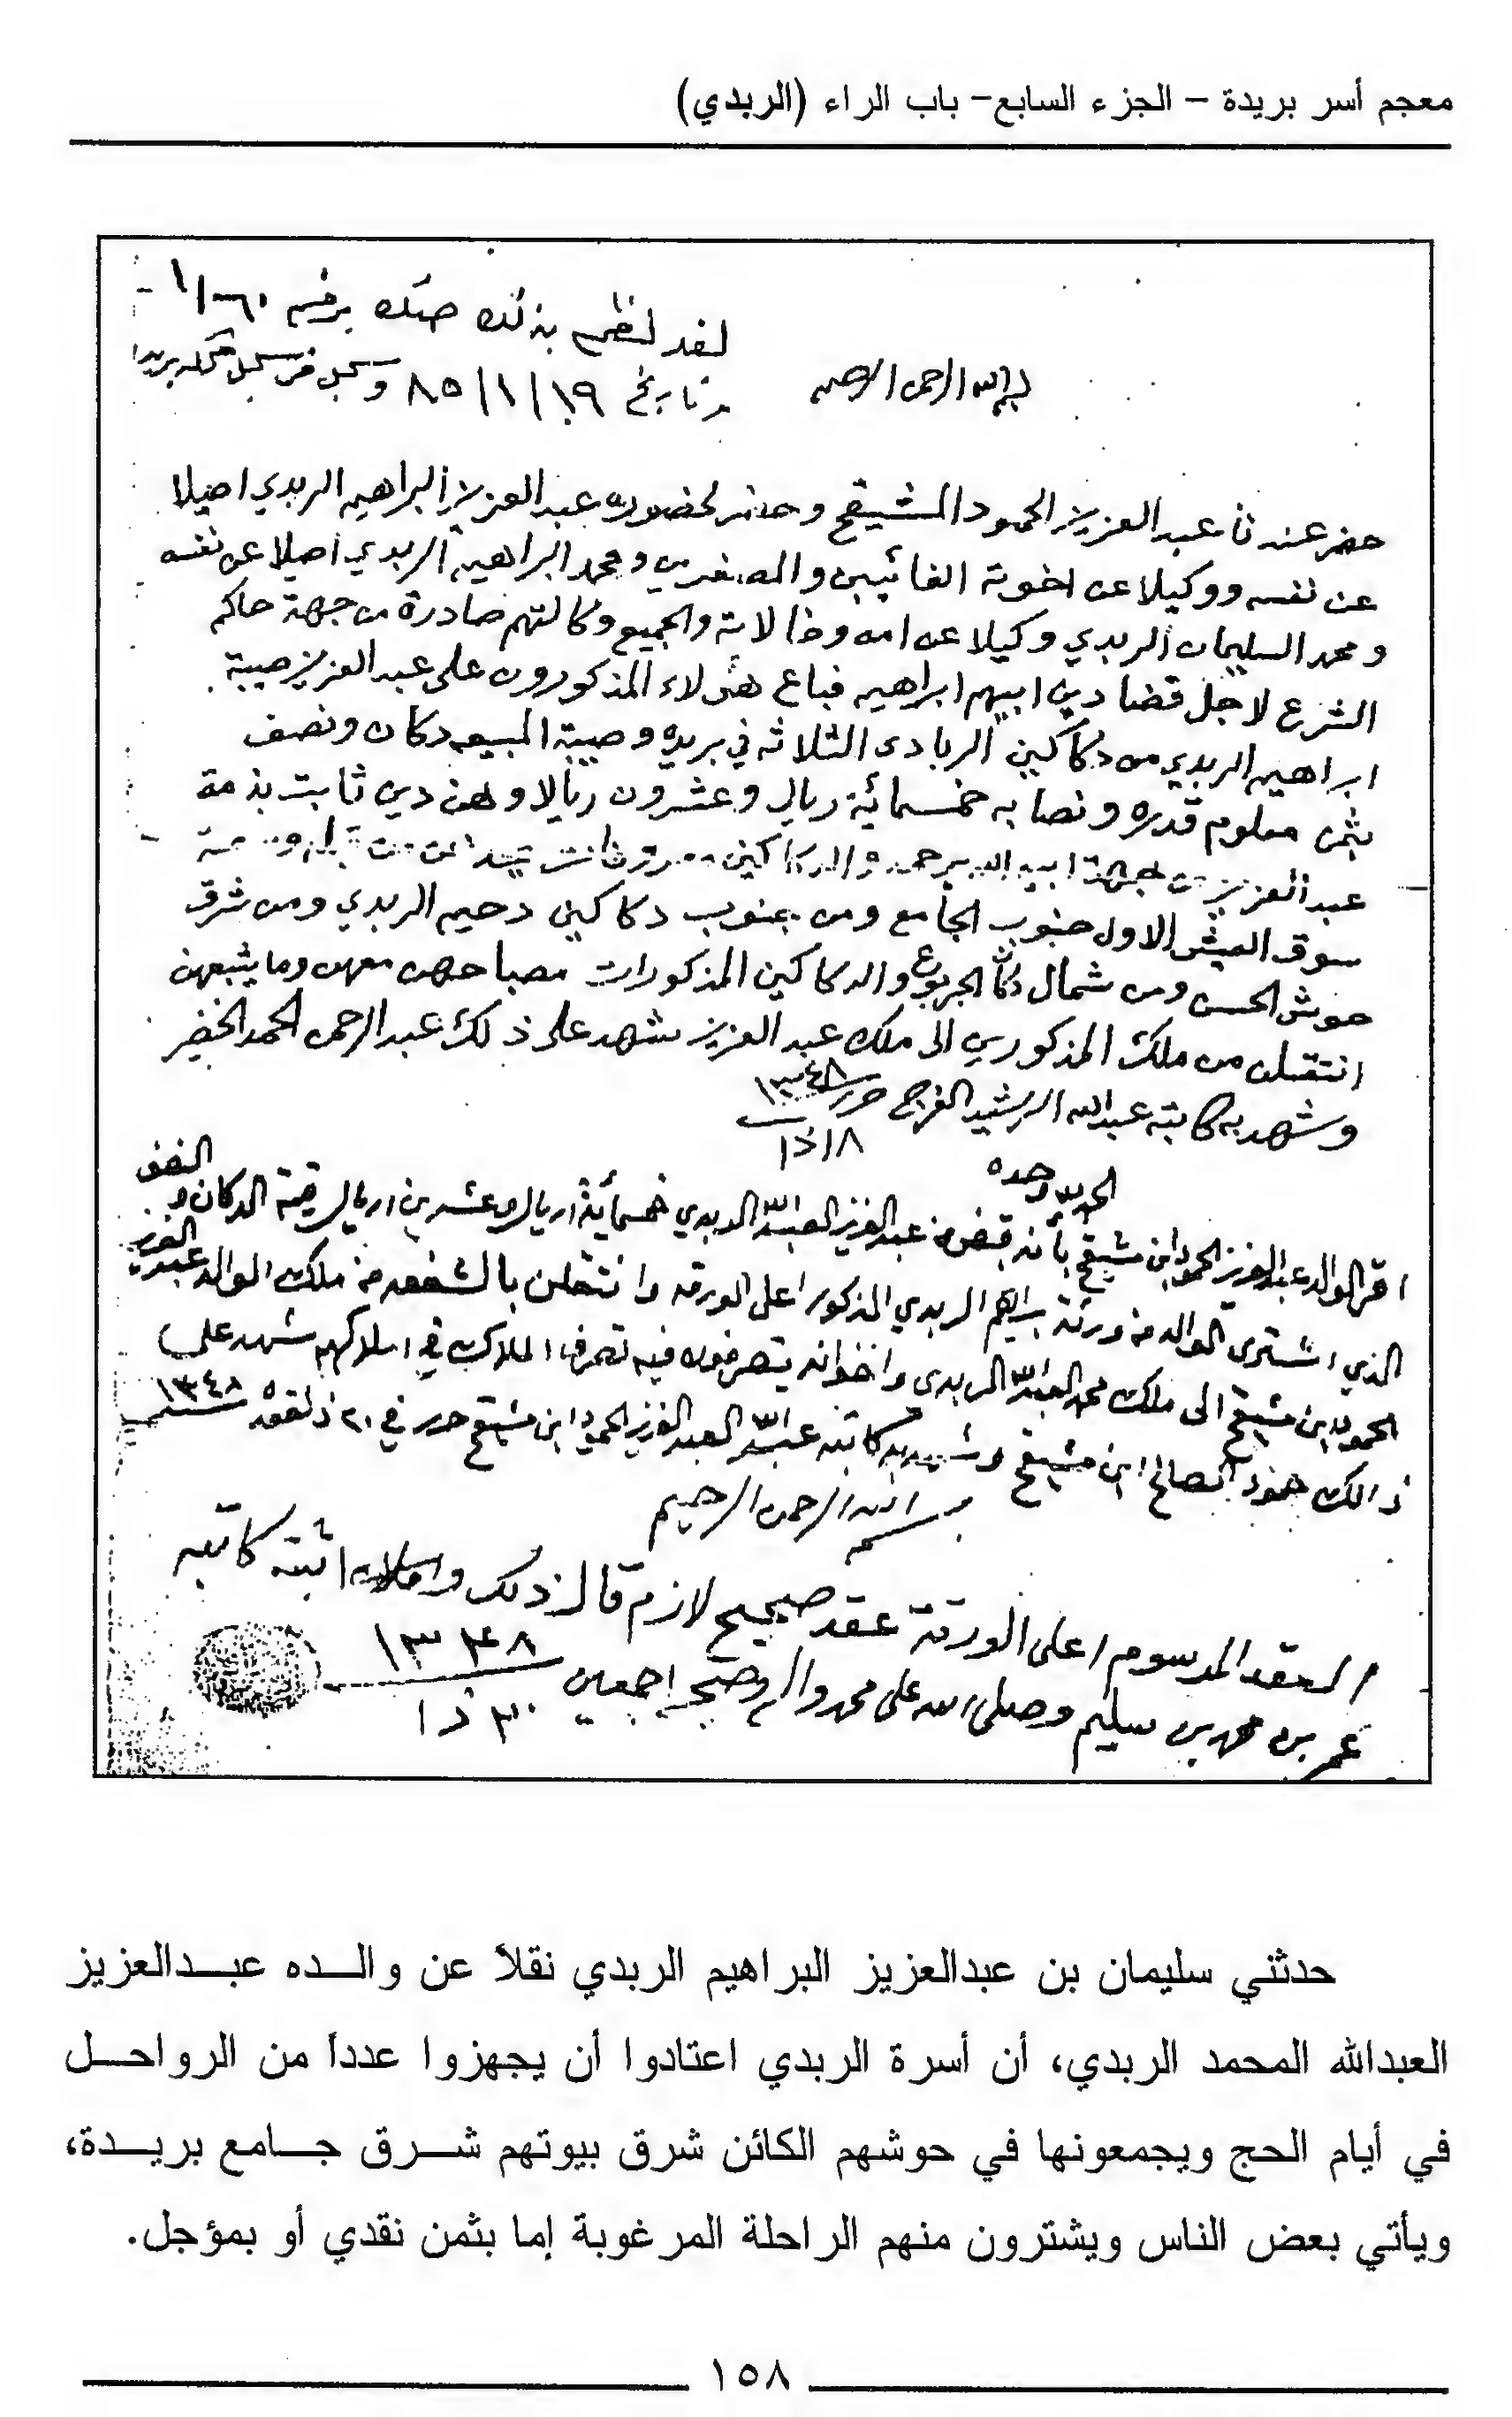 معجم أسر بريدة – الجزء السابع– باب الراء (الربدي)
لقد نظم بذلك صك برقم ٦٠/١
وتاريخ ٨٥/١/١٩ وسجل في سجل محكمة بريدة
بسم الله الرحمن الرحيم
حضر عندنا عبد العزيز الحمود المشيقح وحضر لحضوره عبد العزيز البراهيم الربدي اصيلا
عن نفسه ووكيلا عن اخوته الغائبين والمصغرين ومحمد البراهيم الربدي اصيلا عن نفسه
ومحمد السليمان الربدي وكيلا عن امه وخالاته والجميع وكالتهم صادرة من جهة حاكم
الشرع لاجل قضا دين ابيهم ابراهيم فباع هئولاء المذكورون على عبد العزيز صيبة
ابراهيم الربدي من دكاكين الربادى الثلاثه في بريده وصيبة المبيعه دكان ونصف
بثمن معلوم قدره ونصابه خمسمائة ريال وعشرون ريالا وهن دين ثابت بذمة
عبد العزيز من جهة ابيه الله يرحمه والدكاكين
سوق العيش الاول جنوب الجامع ومن جنوب دكاكين دحيم الربدي ومن شرق
حوش الحسن ومن شمال دكان الجربوع والدكاكين المذكورات مصباحهن معهن وما يتبعهن
انتقلن من ملك المذكورين الى ملك عبد العزيز شهد على ذلك عبد الرحمن الحمد الخضير
وشهد به كاتبه عبد الله الرشيد الفرج حرر ١٣٤٨
١٨ ذا
الحمد لله وحده
اقر الوالد عبد العزيز الحمود ابن مشيقح بأنه قبض من عبد العزيز العبد الله الربدي خمسمائة اريال وعشرين اريال قيمة الدكان و النصف
الذي اشترى الوالد من ورثة براهيم الربدي المذكور اعلى الورقه وانتقلن بالشفعه من ملك الوالد عبد العزيز
الحمود ابن مشيقح الى ملك محمد العبد الله الربدى واخوانه يتصرفون فيه تصرف الملاك في املاكهم شهد على
ذالك حمود الصالح ابن مشيقح وشهد به كاتبه عبد الله العبد العزيز الحمود ابن مشيقح حرر في ٢٠ ذ لقعده ١٣٤٨
بسم الله الرحمن الرحيم
العقد المرسوم اعلى الورقة عقد صحيح لازم قال ذلك واملاه اثبته كاتبه
عمر بن محمد بن سليم وصلى الله على محمد واله وصحبه اجمعين ١٣٤٨
٣٠ ذ ا
حدثني سليمان بن عبدالعزيز البراهيم الربدي نقلاً عن والـده عبـدالعزيز
العبدالله المحمد الربدي، أن أسرة الربدي اعتادوا أن يجهزوا عدداً من الرواحـل
في أيام الحج ويجمعونها في حوشهم الكائن شرق بيوتهم شـرق جـامع بريـدة،
ويأتي بعض الناس ويشترون منهم الراحلة المرغوبة إما بثمن نقدي أو بمؤجل.
١٥٨